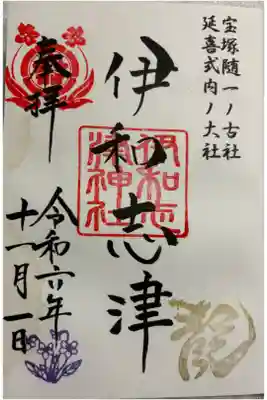 宝塚随一ノ古社
延喜式内ノ大社
奉拝
伊和志津
伊和志津神社
令和六年
十一月一日
龍